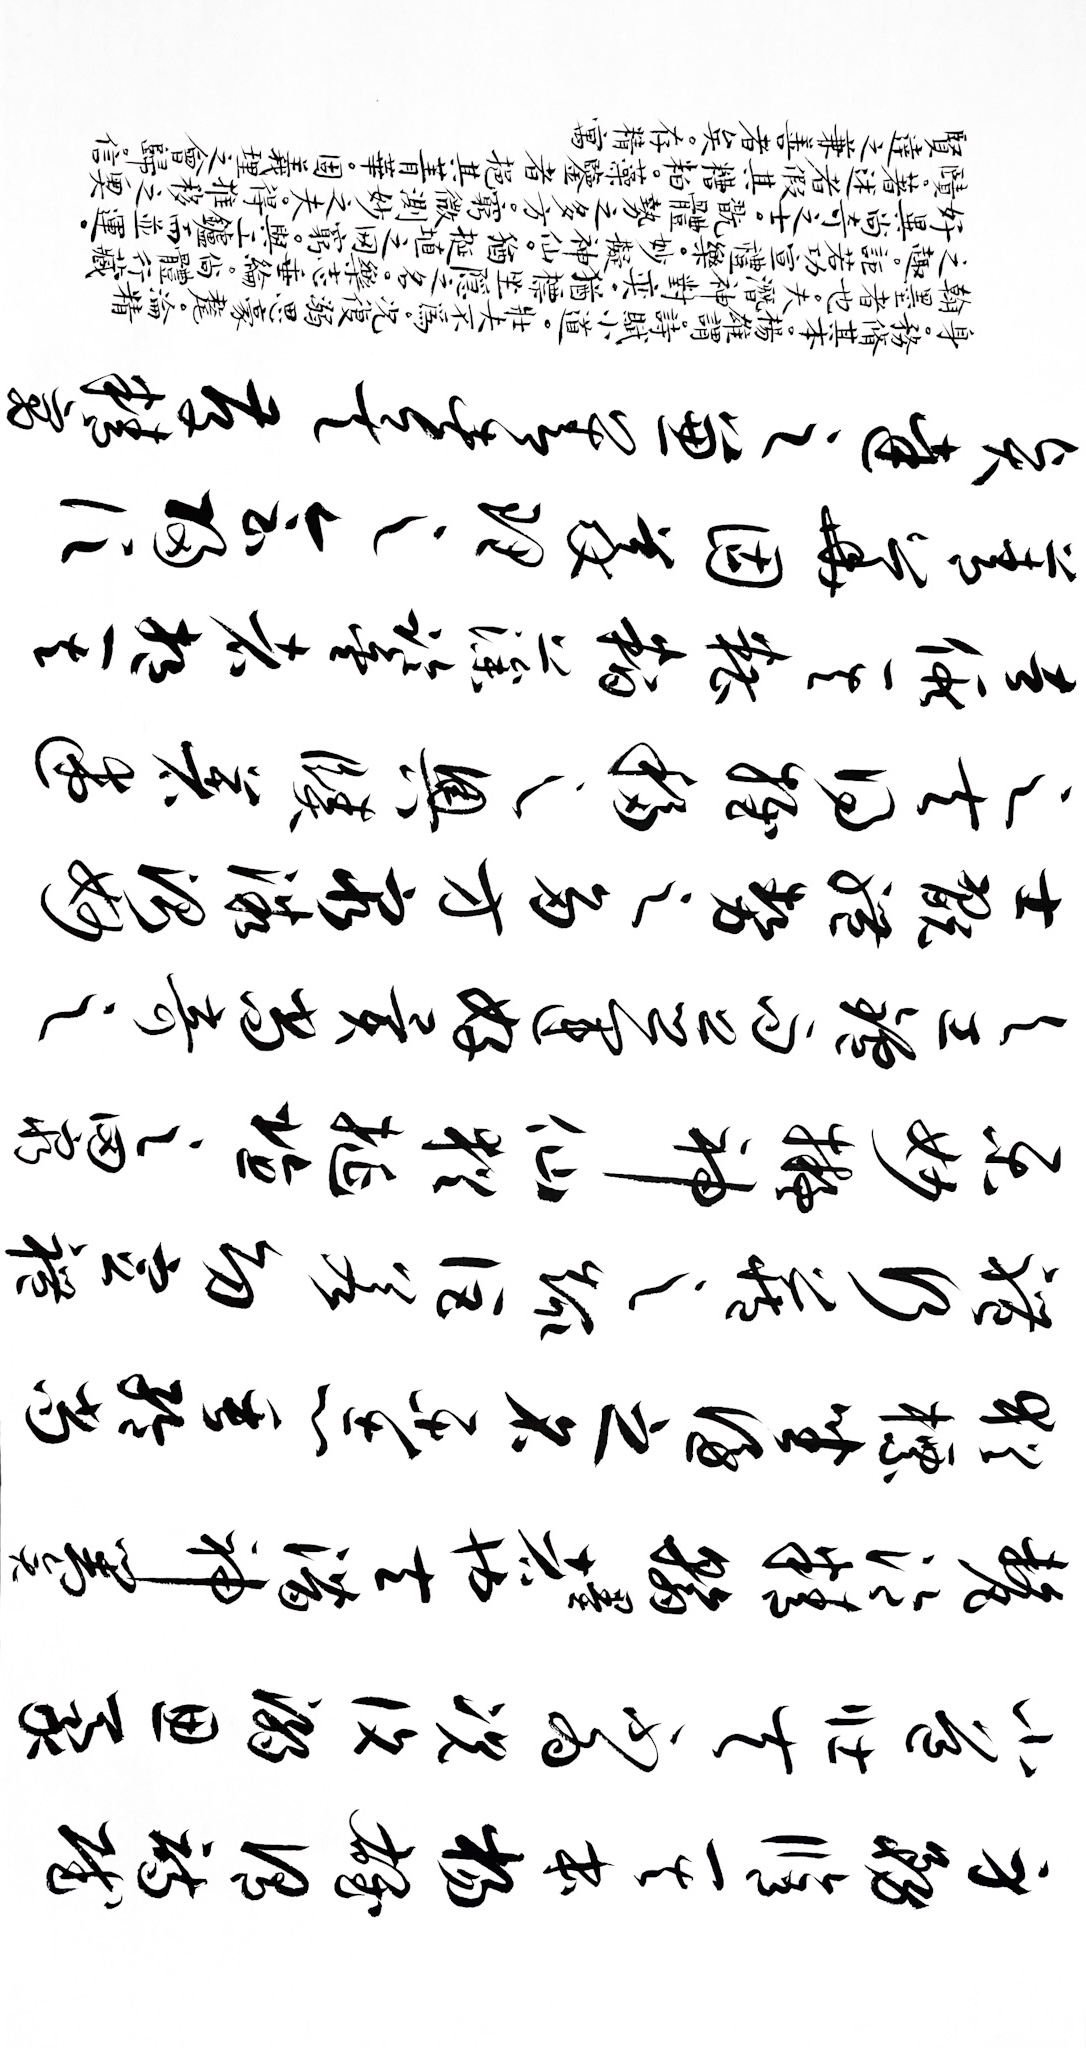 身務脩其本揚雄謂詩賦
小道壯夫不為況復溺思豪
氂淪精翰墨者也夫潛神對奕
猶標坐隱之名樂志垂綸尚
體行藏之趣詎若功宣禮
樂妙擬神仙猶挻埴之罔窮
與工鑪而並運好異尚奇之
士翫體勢之多方窮微測妙
之夫得推移之奧賾著述
者假其糟粕藻鑒者挹其
菁華固義理之會歸信
賢達之兼善者矣存精寓
身。務脩其本。楊雄謂。詩賦小道。壯夫不為。況復溺思豪氂。淪精
翰墨者也。夫潛神對奕。猶標坐隱之名。樂志垂綸。尚體行藏
之趣。詎若功宣禮樂。妙擬神仙。猶挻埴之罔窮。與工鑪而並運。
好異尚奇之士。翫體勢之多方。窮微測妙之夫。得推移之奧
賾。著述者假其糟粕。藻鑒者挹其菁華。固義理之會歸。信
賢達之兼善者矣。存精寓